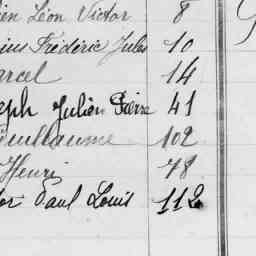 ien Léon Victor 8
ius Frédéric Jules 10
arcel 14
seph Julien Pierre 41
Guillaume 102
Henri 78
tor Paul Louis 112